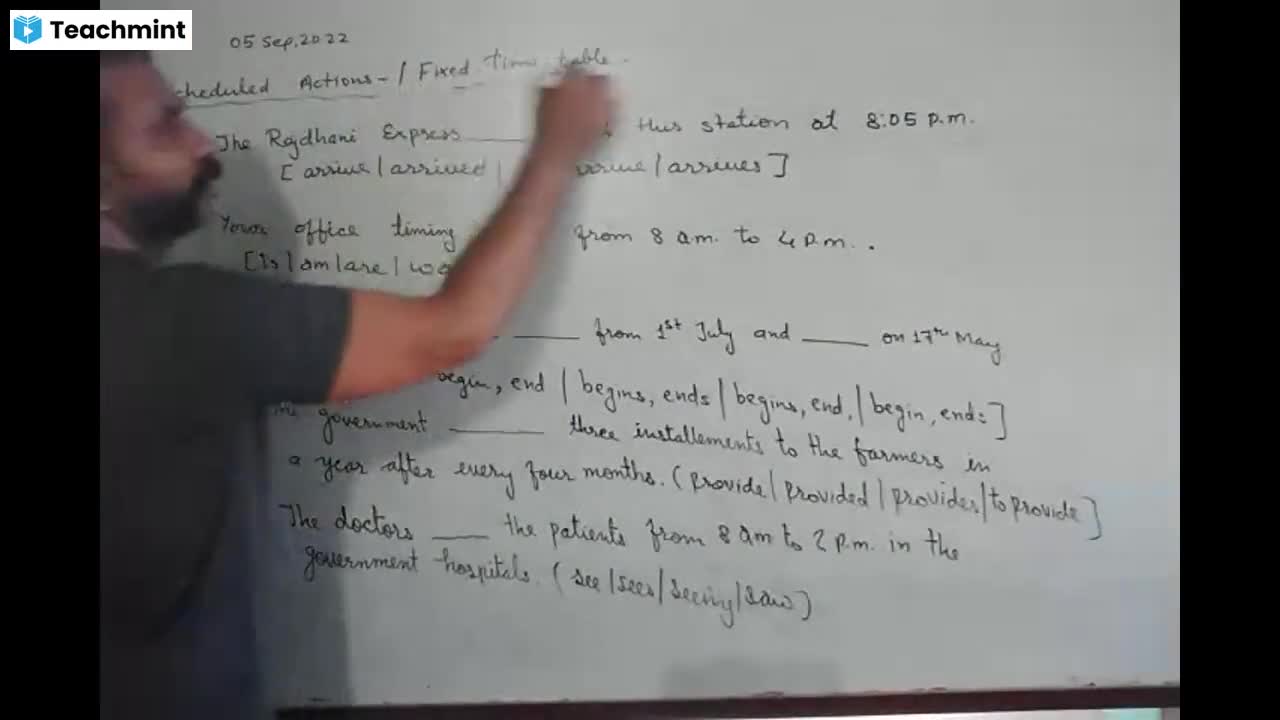 Teachmint
05 Sep, 2022
cheduled Actions - / Fixed Time table.
The Rajdhani Express ____ this station at 8:05 P.m.
[arrive | arrived | arrive | arrives]
Your office timing from 8 am. to 4 p.m..
[Is | am | are |
____ from 1st July and ____ on 17th May
begin, end | begins, ends | begins, end, | begin, ends]
government ____ three installements to the farmers in
a year after every four months. (provide | provided | provides | to provide]
The doctors ____ the patients from 8 am to 2 p.m. in the
government hospitals. (see | sees | seeing | saw)